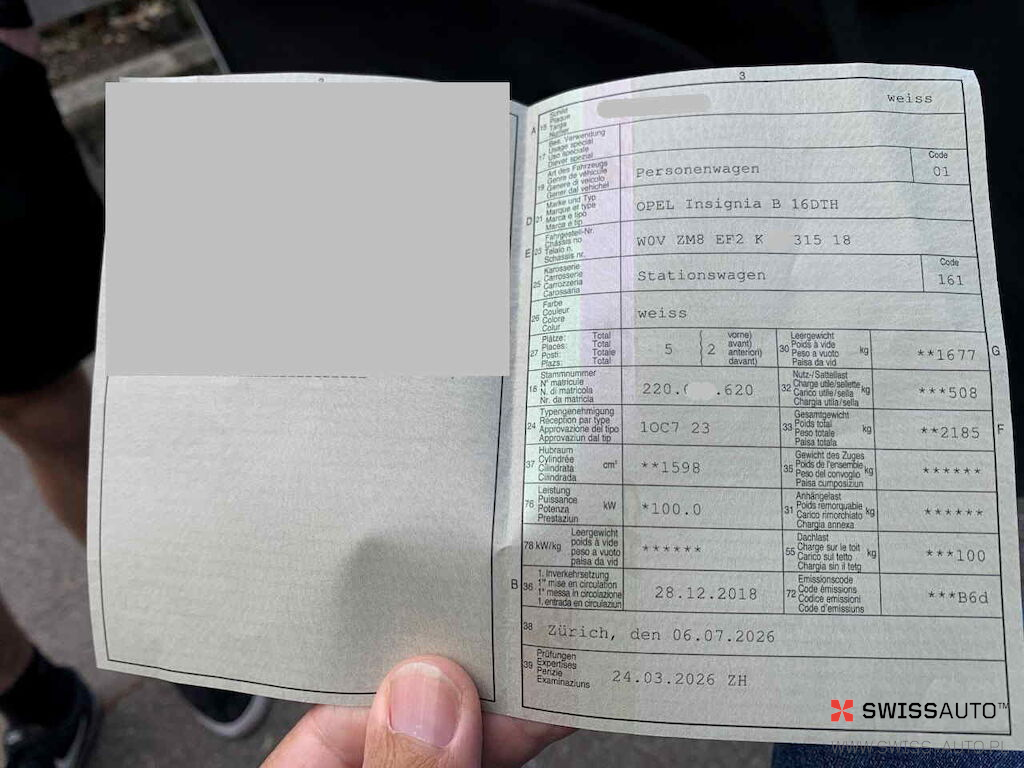 3
A 15 Schild Plaque Targa Numer weiss
17 Bes. Verwendung Usage spécial Uso speciale Diever spezial
19 Art des Fahrzeugs Genre de véhicule Genere di veicolo Gener dal vehichel Personenwagen Code 01
D 21 Marke und Typ Marque et type Marca e tipo Marca e tip OPEL Insignia B 16DTH
E 23 Fahrgestell-Nr. Châssis no Telaio n. Schassis nr. W0V ZM8 EF2 K 315 18
25 Karosserie Carrosserie Carrozzeria Carossaria Stationswagen Code 161
26 Farbe Couleur Colore Colur weiss
27 Plätze: Total Places: Total Posti: Totale Plazs: Total 5 ( 2 vorne) avant) anteriori) davant) 30 Leergewicht Poids à vide Peso a vuoto Paisa da vid kg **1677 G
18 Stammnummer N° matricule N. di matricola Nr. da matricla 220. .620 32 Nutz-/Sattellast Charge utile/sellette Carico utile/sella Chargia utila/sella kg ***508
24 Typengenehmigung Réception par type Approvazione del tipo Approvaziun dal tip 1OC7 23 33 Gesamtgewicht Poids total Peso totale Paisa totala kg **2185 F
37 Hubraum Cylindrée Cilindrata Cilindrada cm³ **1598 35 Gewicht des Zuges Poids de l'ensemble Peso del convoglio Paisa cumposiziun kg ******
76 Leistung Puissance Potenza Prestaziun kW *100.0 31 Anhängelast Poids remorquable Carico rimorchiato Chargia annexa kg ******
78 kW/kg Leergewicht poids à vide peso a vuoto paisa da vid ****** 55 Dachlast Charge sur le toit Carico sul tetto Chargia sin il tetg kg ***100
B 36 1. Inverkehrsetzung 1re mise en circulation 1a messa in circolazione 1. entrada en circulaziun 28.12.2018 72 Emissionscode Code émissions Codice emissioni Code d'emissiuns ***B6d
38 Zürich, den 06.07.2026
39 Prüfungen Expertises Perizie Examinaziuns 24.03.2026 ZH
SWISSAUTO™
WWW.SWISS-AUTO.PL